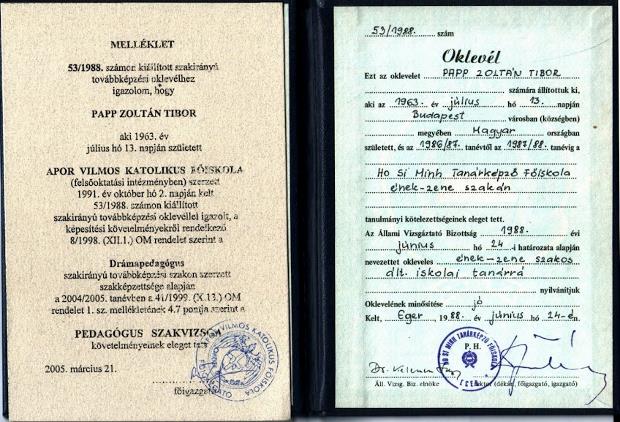 MELLÉKLET
53/1988. számon kiállított szakirányú
továbbképzési oklevélhez
igazolom, hogy
PAPP ZOLTÁN TIBOR
aki 1963. év
július hó 13. napján született
APOR VILMOS KATOLIKUS FŐISKOLA
(felsőoktatási intézményben) szerzett
1991. év október hó 2. napján kelt
53/1988. számon kiállított
szakirányú továbbképzési oklevéllel igazolt, a
képesítési követelményekről rendelkező
8/1998. (XII.1.) OM rendelet szerint a
Drámapedagógus
szakirányú továbbképzési szakon szerzett
szakképzettsége alapján
a 2004/2005. tanévben a 41/1999. (X.13.) OM
rendelet 1. sz. mellékletének 4.7 pontja szerint a
PEDAGÓGUS SZAKVIZSGA
követelményeinek eleget
2005. március 21.
főigazgató
VILMOS KATOLIKUS FŐISKOLA
53/1988. szám
Oklevél
Ezt az oklevelet PAPP ZOLTÁN TIBOR
számára állítottuk ki,
aki az 1963. év július hó 13. napján
Budapest városban (községben)
megyében Magyar országban
született, és az 1986/87. tanévtől az 1987/88. tanévig a
Ho Si Minh Tanárképző Főiskola
ének-zene szakán
tanulmányi kötelezettségeinek eleget tett.
Az Állami Vizsgáztató Bizottság 1988. évi
június hó 24 -i határozata alapján
nevezettet okleveles ének-zene szakos
ált. iskolai tanárrá
nyilvánítjuk
Oklevelének minősítése jó
Kelt, Eger, 1988. év június hó 24-én.
P. H.
HO SI MINH TANÁRKÉPZŐ FŐISKOLA
EGER
Áll. Vizsg. Biz. elnöke
rektor (dékán, főigazgató, igazgató)